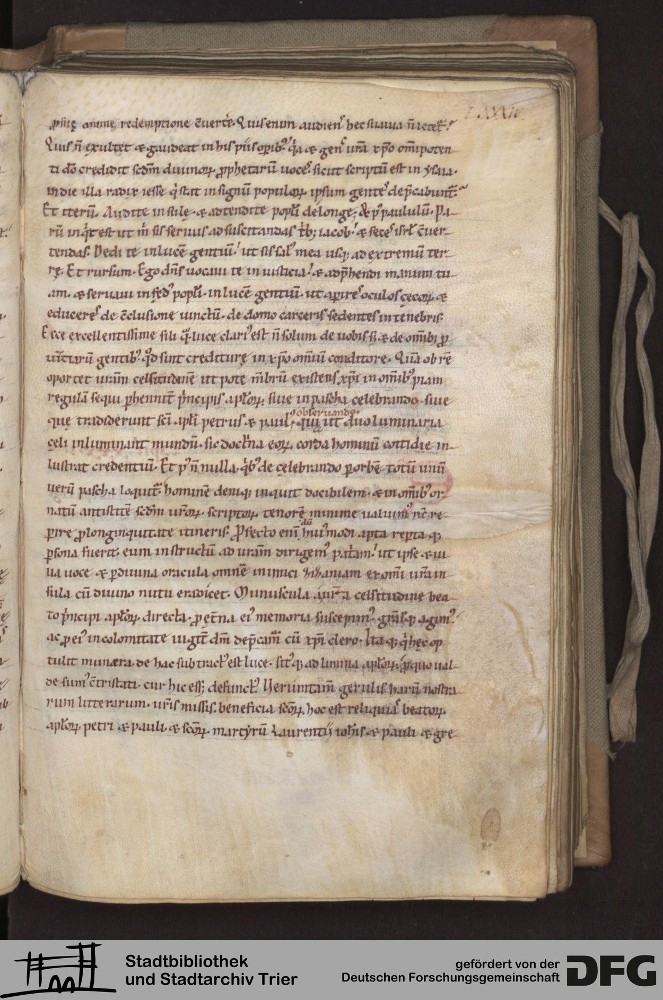 LXXXII
ꝓprię anime redemptione c̄uertit. Quis enim audiens hec suauia n̄ letet̄?
Quis n̄ exultet & gaudeat in his piis oꝑibꝰ? q̇a & gens urā xp̄o om̄ipoten
ti dō credidit scd̄m diuinoꝝ ꝓphetarū uoces sicut scriptū est in ysaia.
in die illa radix iesse q̇ stat in signū populoꝝ ipsum gentes dep̄cabunt̄.
Et iterū. Audite insulę & adtendite popl̄i de longe; & pꝰ paululū. Pa
rū inq̇t est ut m̄ sis seruus ad suscitandas tribꝰ iacob. & feces isrl̄ c̄uer
tendas. Dedi te in lucē gentiū. ut sis salꝰ mea usq; ad extremū ter
rę. Et rursum. Ego dn̄s uocaui te in iusticia. & adp̄hendi manum tu
am. & seruaui in fedꝰ popl̄i. in lucē gentiū. ut aꝑires oculos cęcoꝝ. &
educeres de c̄clusione uinctū. de domo carceris sedentes in tenebris.
Ecce excellentissime fili q̄ luce clariꝰ est n̄ solum de uobis s; & de om̄ibꝰ ꝓ
phetatū gentibꝰ. q̇d sint crediturę in xp̄o om̄iū conditore. Quā ob rē
oportet uram̄ celsitudinē ut pote mēbrū existens xp̄i in om̄ibꝰ piam
regulā sequi ꝑhennit̄ p̄ncipis apl̄oꝝ. siue in pascha celebrando. siue
obseruando
que tradiderunt sc̄i apl̄i petrus & paulꝰ. qui ut duo luminaria
cęli inluminant mundū. sic doctrīna eoꝝ. corda hominū cottidie in
lustrat credentiū. Et pꝰ n̄ nulla. q̇bꝰ de cęlebrando ꝑ orbē totū unū
uerū pascha loquit̄. hominē deniq; inquit docibilem. & in om̄ibꝰ or
natū antistitē scd̄m uroꝝ scriptoꝝ tenorē minime ualuimꝰ nc̄ re
perire ꝓ longinquitate itineris. Profecto eni hui̾ modi apta repta q;
ꝑsona fuerit. eum instructū ad uram̄ dirigemꝰ patr̄iam. ut ipse & ui
ua uoce & ꝑ diuina oracula omnē inimici zizaniam ex om̄i ura̅ in
sula cū diuino nutu eradicet. Munuscula a ur̄a celsitudine bea
to p̄ncipi apl̄oꝝ directa. ꝓ et̄na eiꝰ memoria suscepimꝰ. gr̄asq; ei agimꝰ.
ac ꝓ eiꝰ incolomitate iugit̄ dm̄ dep̄camꝰ cū xp̄i clero. Ita q; q̇ hec op
tulit munera. de hac subtractꝰ est luce. sitꝰ q; ad limina apl̄oꝝ. ꝓ quo ual
de sumꝰ c̄tristati. cur hic eēt defunctꝰ. Uerumtam̄ gerulis harū nostra
rum litterarum. ur̄is missis. beneficia sc̄oꝝ. hoc est reliquias beatoꝝ
apl̄oꝝ petri & pauli. & sc̄oꝝ martyrū Laurentij ioh̄is & pauli & gre
Stadtbibliothek
und Stadtarchiv Trier
gefördert von der
Deutschen Forschungsgemeinschaft
DFG